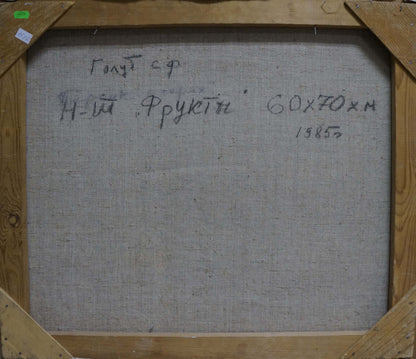 Голуб с ф
Н-т "Фрукты" 60х70 х м
1985г